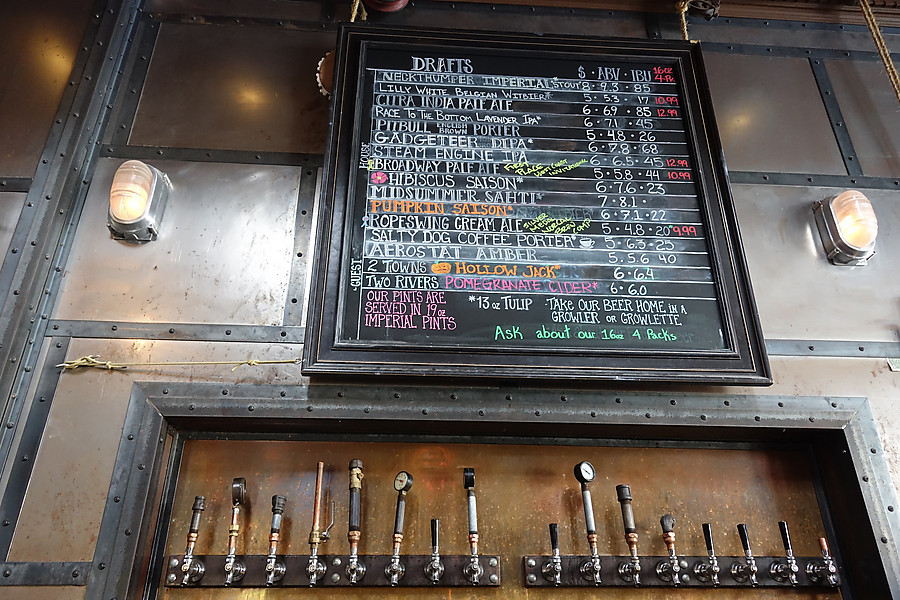 DRAFTS $ · ABV · IBU 16oz 4-Pk
NECKTHUMPER IMPERIAL STOUT* 8 · 9.3 · 85
LILLY WHITE BELGIAN WITBIER* 5 · 5.3 · 17 10.99
CITRA INDIA PALE ALE 6 · 6.9 · 85 12.99
RACE TO THE BOTTOM LAVENDER IPA* 6 · 7.1 · 45
PITBULL ENGLISH BROWN PORTER 5 · 4.8 · 26
GADGETEER DIPA* 6 · 7.8 · 68
STEAM ENGINE IPA 6 · 6.5 · 45 12.99
BROADWAY PALE ALE FIRST PLACE 5 · 5.8 · 44 10.99
HIBISCUS SAISON* 6 · 7.6 · 23
MIDSUMMER SAHTI* 7 · 8.1 ·
PUMPKIN SAISON* 6 · 7.1 · 22
ROPESWING CREAM ALE SILVER 5 · 4.8 · 20 9.99
SALTY DOG COFFEE PORTER 5 · 6.3 · 25
AEROSTAT AMBER 5 · 5.6 · 40
2 TOWNS HOLLOW JACK* 6 · 6.4
TWO RIVERS POMEGRANATE CIDER* 6 · 6.0
HOUSE
GUEST
OUR PINTS ARE
SERVED IN 19oz
IMPERIAL PINTS
*13oz TULIP
TAKE OUR BEER HOME IN A
GROWLER OR GROWLETTE
ASK about our 16oz 4 Packs